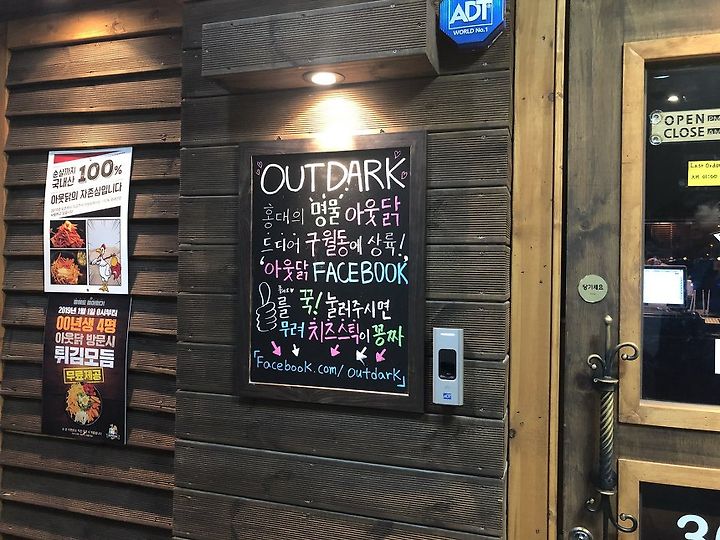 순살까지
국내산 100%
아웃닭의 자존심입니다
2019년 1월 1일 0시부터
00년생 4명
아웃닭 방문시
튀김모듬
무료제공
ADT
WORLD No.1
OUTDARK
홍대의 명물 아웃닭
드디어 구월동에 상륙!,
'아웃닭 FACEBOOK'
를 꾹! 눌러주시면
무려 치즈스틱이 꽁짜
「Facebook.com/outdark」
ADT
OPEN
CLOSE
Last Order
AM
당기세요